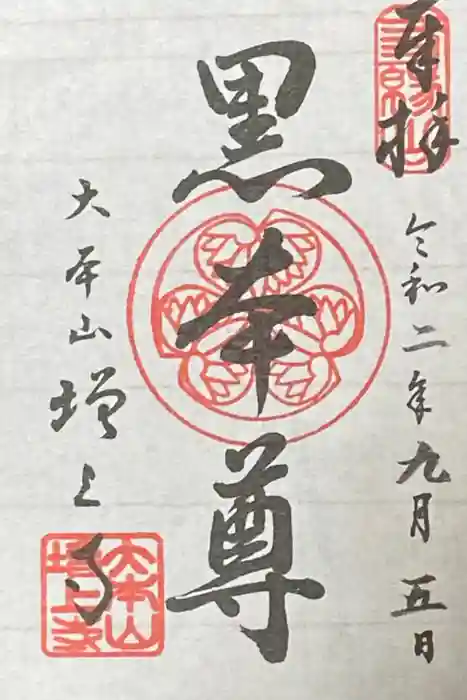 奉拝
令和二年九月五日
黒本尊
大本山増上寺
三縁山
大本山
増上寺